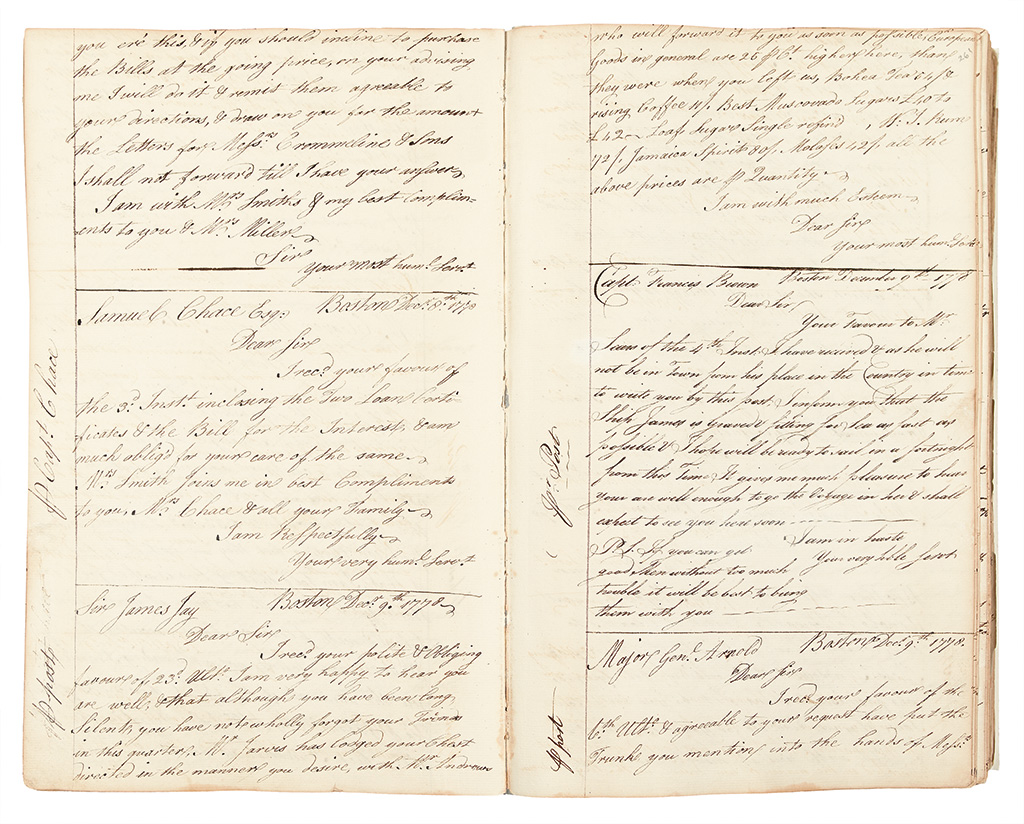 you rec this, & if you should incline to purchase
the Bills at the going price, on your advising
me I will do it & remit them agreeable to
your directions, & draw on you for the amount
the Letters for Messrs Crommeline & Sons
I shall not forward till I have your answer,
I am with Mrs Smiths & my best complim-
ents to you & Mrs Miller
Sir
Your most huml Servt
Samuel Chace Esqr Boston Decr 8th 1778
Dear Sir
I recd your favour of
the 3d Instt inclosing the Two Loan Certi-
ficates & the Bill for the Interest, & am
much obligd for your care of the same
Mrs Smith Joins me in best Compliments
to you, Mrs Chace & all your Family
I am Respectfully
Your very huml Servt
℔ Capt Chace
Sir James Jay Boston Decr 9th 1778
Dear Sir
I recd your polite & Obliging
favour of 23d Ultt I am very happy to hear you
are well, & that although you have been long
Silent, you have not wholly forgot your Friends
in this quarter, Mr Jarvis has lodged your Chest
directed in the manner you desire, with Mr Andrews
℔ post
who will forward it to you as soon as possible, European
Goods in general are 26 ℔ Ct higher here, than
they were when you left us, Bohea Tea
rising Coffee Best Muscovado Sugars £40 to
£42 Loaf Sugar Single refind , W. I. Rum
72/. Jamaica Spirit 80/. Molasses 42/. all the
above prices are ℔ Quantity
I am with much Esteem
Dear Sir
Your most huml Servt
Capt Francis Brown Boston December 9th 1778
Dear Sir,
Your Favour to Mr
Sears of the 4th Inst I have received & as he will
not be in Town from his place in the Country in time
to write you by this post, I inform you that the
Ship James is graved & fitting for Sea as fast as
possible & I hope will be ready to sail in a fortnight
from this Time It gives me much pleasure to hear
your are well enough to go the Voyage in her & shall
expect to see you here soon
I am in haste
Your very hble Servt
P.S. If you can get
good Men without too much
trouble it will be best to bring
them with you
℔ Post
Major Genl Arnold Boston Decr 9th 1778
Dear Sir
I recd your favour of the
6th Ultt & agreable to your request have put the
Trunk you mention, into the hands of Messrs
℔ post